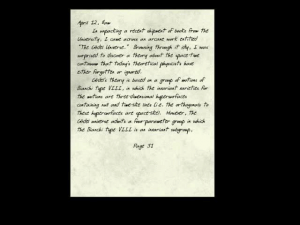 April 12, Raw
In unpacking a recent shipment of books from the
University, I came across an arcane work entitled
"The Gödel Universe." Browsing through it idly, I was
surprised to discover a theory about the space-time
continuum that today's theoretical physicists have
either forgotten or ignored.
Gödel's theory is based on a group of motions of
Bianchi type VIII, in which the invariant varieties for
the motions are three-dimensional hypersurfaces
containing null and time-like lines (i.e. the orthogonals to
these hypersurfaces are space-like). However, the
Gödel universe admits a four-parameter group in which
the Bianchi type VIII is an invariant subgroup.
Page 31